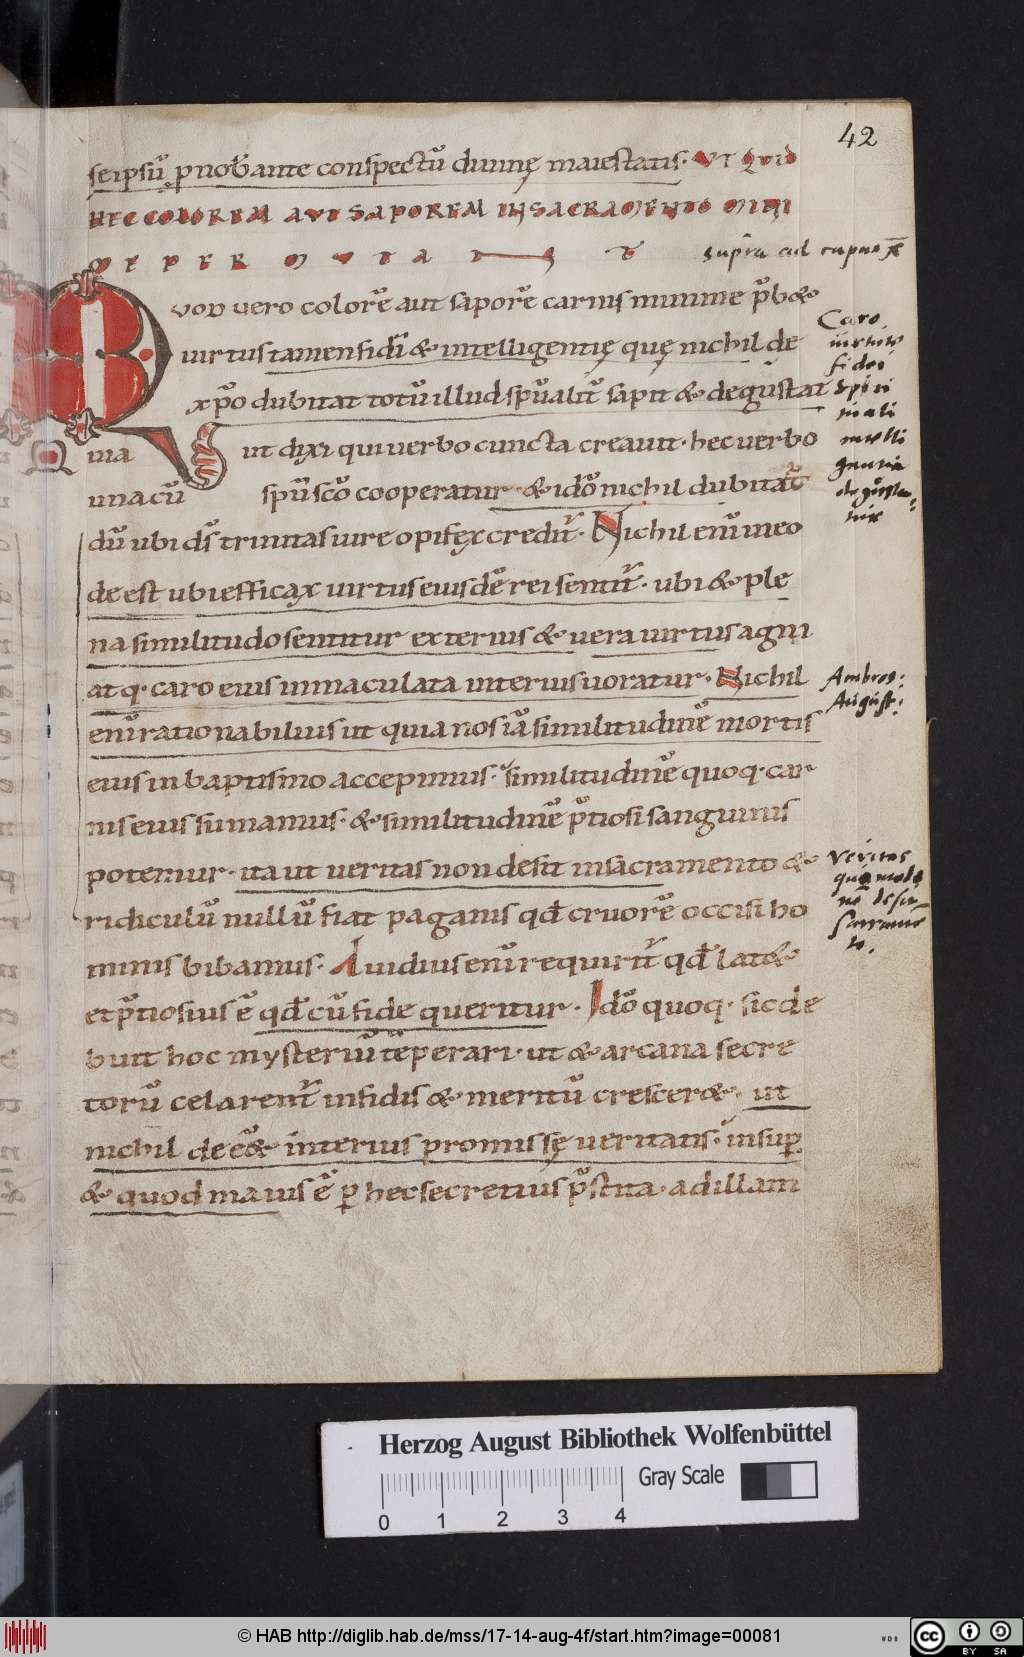 42
seipsū p nob ante conspectū diuinę maiestatis. VT QVID
HEC COLOREM AVT SAPOREM IN SACRAMENTO MINI
ME PERMVTANT
supra ad cap
Qvod vero colorē aut saporē carnis minime pb&
uirtus tamen fidei & intelligentię quę nichil de
xpo dubitat totū illud spualit sapit & degustat
uia ut dixi qui uerbo cuncta creauit. hec uerbo
una cū spu sco cooperatur. & ido nichil dubitat
dū ubi ds trinitas iure opifex credit. Nichil enim in eo
de est ubi efficax uirtus eiusdē rei sentit. ubi & ple
na similitudo sentitur exterius & uera uirtus agni
atq. caro eius inmaculata interius uoratur. Nichil
enī rationabilius ut quia nos iā similitudinē mortis
eius in baptismo accepimus. similitudinē quoq. car
nis eius sumamus. & similitudinē ptiosi sanguinis
potemur. ita ut ueritas non desit in sacramento &
ridiculū nullū fiat paganis qd cruorē occisi ho
minis bibamus. Auidius enī requirit qd lat&
et ptiosius ē qd cū fide queritur. Ido quoq. sic de
buit hoc mysteriū tēperari. ut & arcana secre
torū celarent infidis & meritū crescer&. ut
nichil deēē& interius promissę ueritatis. insup
& quod maius ē p hec secretius pstita. ad illam
Caro
uirtute
fidei
spiri
tuali
intelli
gentia
degusta
tur
Ambros:
August:
Veritas
quomodo
nō desit
Sacramē
to.
Herzog August Bibliothek Wolfenbüttel
0 1 2 3 4
Gray Scale
© HAB http://diglib.hab.de/mss/17-14-aug-4f/start.htm?image=00081
WDB
cc BY SA